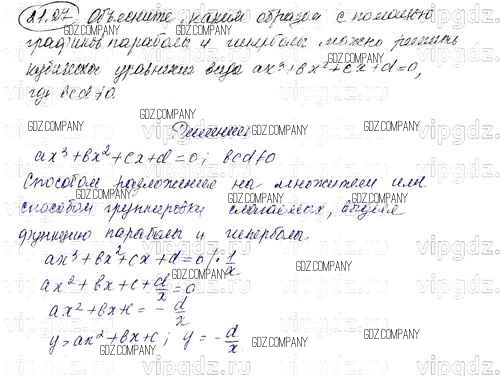 81.27 Объясните, каким образом с помощью
графиков параболы и гиперболы можно решить
кубическое уравнение вида ax³+bx²+cx+d=0,
где bcd≠0.
Решение
ax³+bx²+cx+d=0; bcd≠0
Способом разложения на множители или
способом группировки слагаемых, выделя
функцию параболы и гиперболы.
ax³+bx²+cx+d=0 |·1/x
ax²+bx+c+d/x=0
ax²+bx+c=-d/x
y=ax²+bx+c; y=-d/x
GDZ.COMPANY
vipgdz.ru